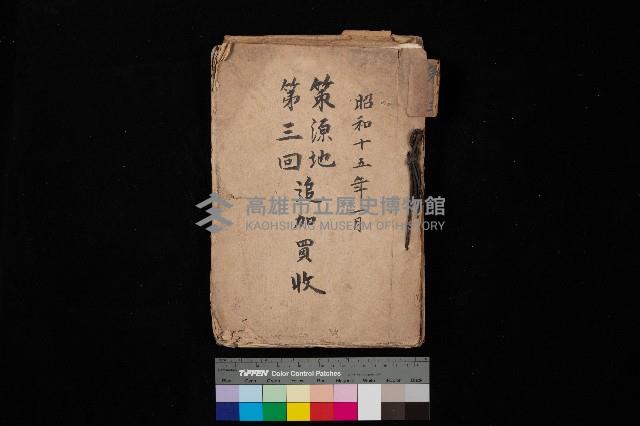 昭和十五年一月
策源地
第三回
追加買收
高雄市立歷史博物館
KAOHSIUNG MUSEUM OF HISTORY
TIFFEN Color Control Patches
Blue Cyan Green Yellow Red Magenta White 3/Color Black